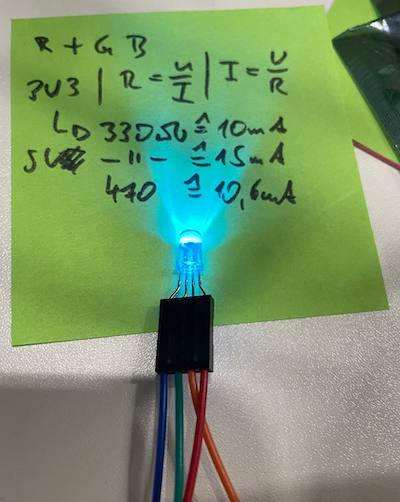 R + G B
3V3 | R = U/I | I = U/R
↳ 330Ω ≙ 10mA
5V -"- ≙ 15mA
470 ≙ 10,6mA